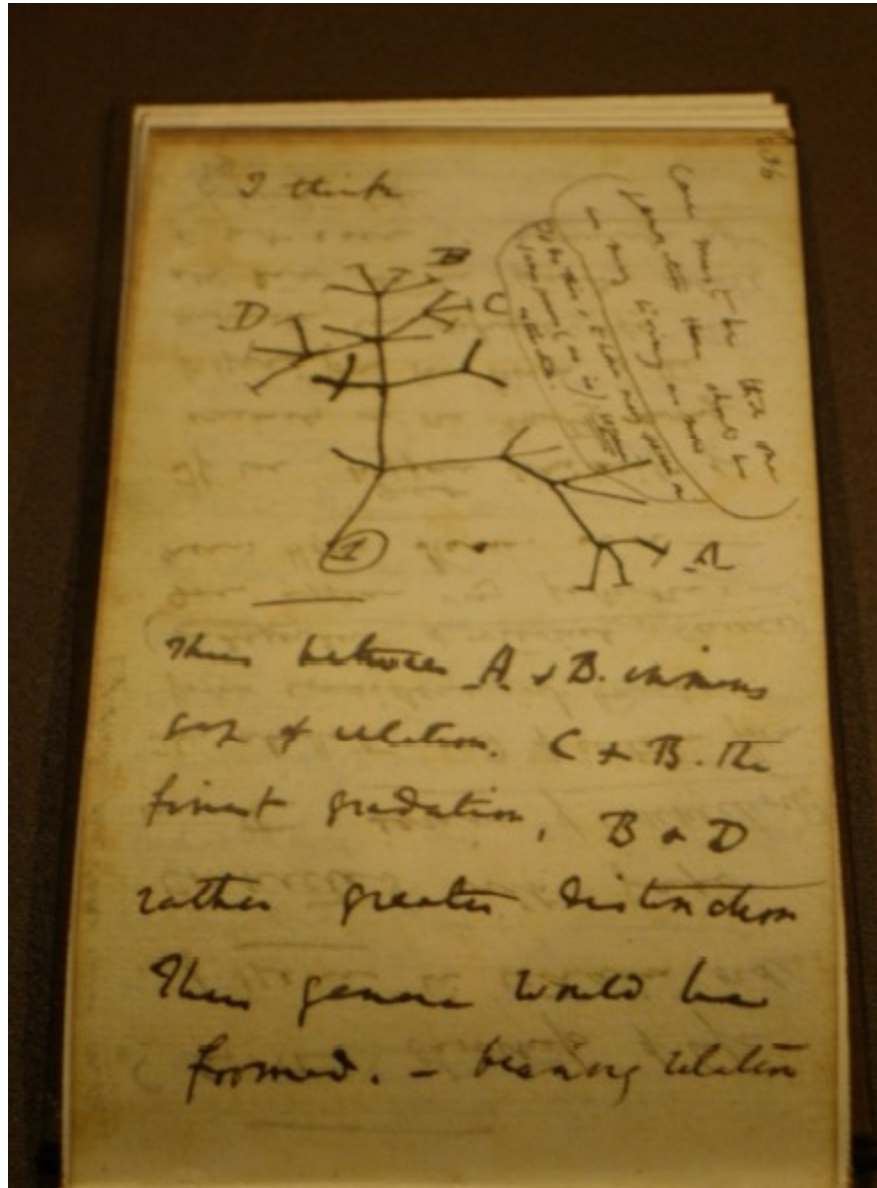 I think
36
Case must be that one
generation then should be
as many living as now
To do this & to have many species in
same genus (as is) requires
extinction.
B
D
C
1
A
Thus between A & B. immens
gap of relation. C & B. The
finest gradation, B & D
rather greater distinction
Thus genera would be
formed. — bearing relation